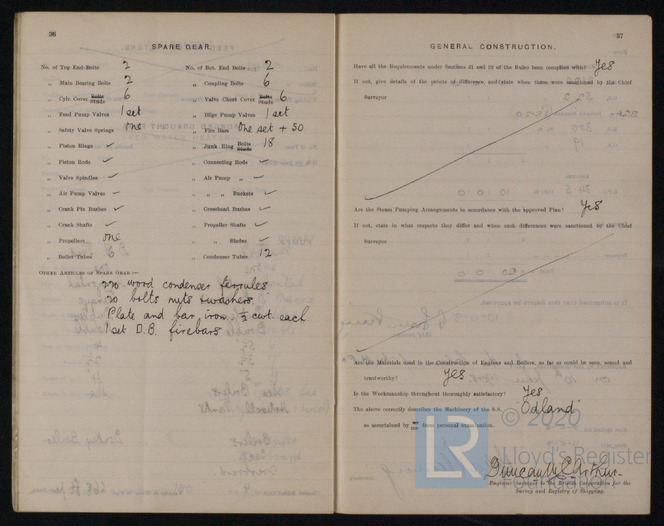 36
SPARE GEAR.
No. of Top End Bolts 2
No. of Bot. End Bolts 2
„ Main Bearing Bolts 2
„ Coupling Bolts 6
„ Cylr. Cover Bolts Studs 6
„ Valve Chest Cover Bolts Studs 6
„ Feed Pump Valves 1 set
„ Bilge Pump Valves 1 set
„ Safety Valve Springs one
„ Fire Bars One set + 50
„ Piston Rings ✓
„ Junk Ring Bolts Studs 18
„ Piston Rods ✓
„ Connecting Rods ✓
„ Valve Spindles ✓
„ Air Pump „ ✓
„ Air Pump Valves ✓
„ „ „ Buckets ✓
„ Crank Pin Bushes ✓
„ Crosshead Bushes ✓
„ Crank Shafts ✓
„ Propeller Shafts ✓
„ Propellers one
„ „ Blades ✓
„ Boiler Tubes 6
„ Condenser Tubes 12
OTHER ARTICLES OF SPARE GEAR :—
wood condenser ferrules
20 bolts nuts washers
Plate and bar iron ½ cwt. each
1 set D.B. firebars
37
GENERAL CONSTRUCTION.
Have all the Requirements under Sections 21 and 22 of the Rules been complied with? Yes
If not, give details of the points of difference, and state when these were sanctioned by the Chief
Surveyor
Are the Steam Pumping Arrangements in accordance with the approved Plan? Yes
If not, state in what respects they differ and when such differences were sanctioned by the Chief
Surveyor
Are the Materials used in the Construction of Engines and Boilers, so far as could be seen, sound and
trustworthy? Yes
Is the Workmanship throughout thoroughly satisfactory? Yes
The above correctly describes the Machinery of the S.S. Odland
as ascertained by me from personal examination.
© 2020
LR Lloyd's Register
Duncan McArthur
Engineer Surveyor to the British Corporation for the
Survey and Registry of Shipping.